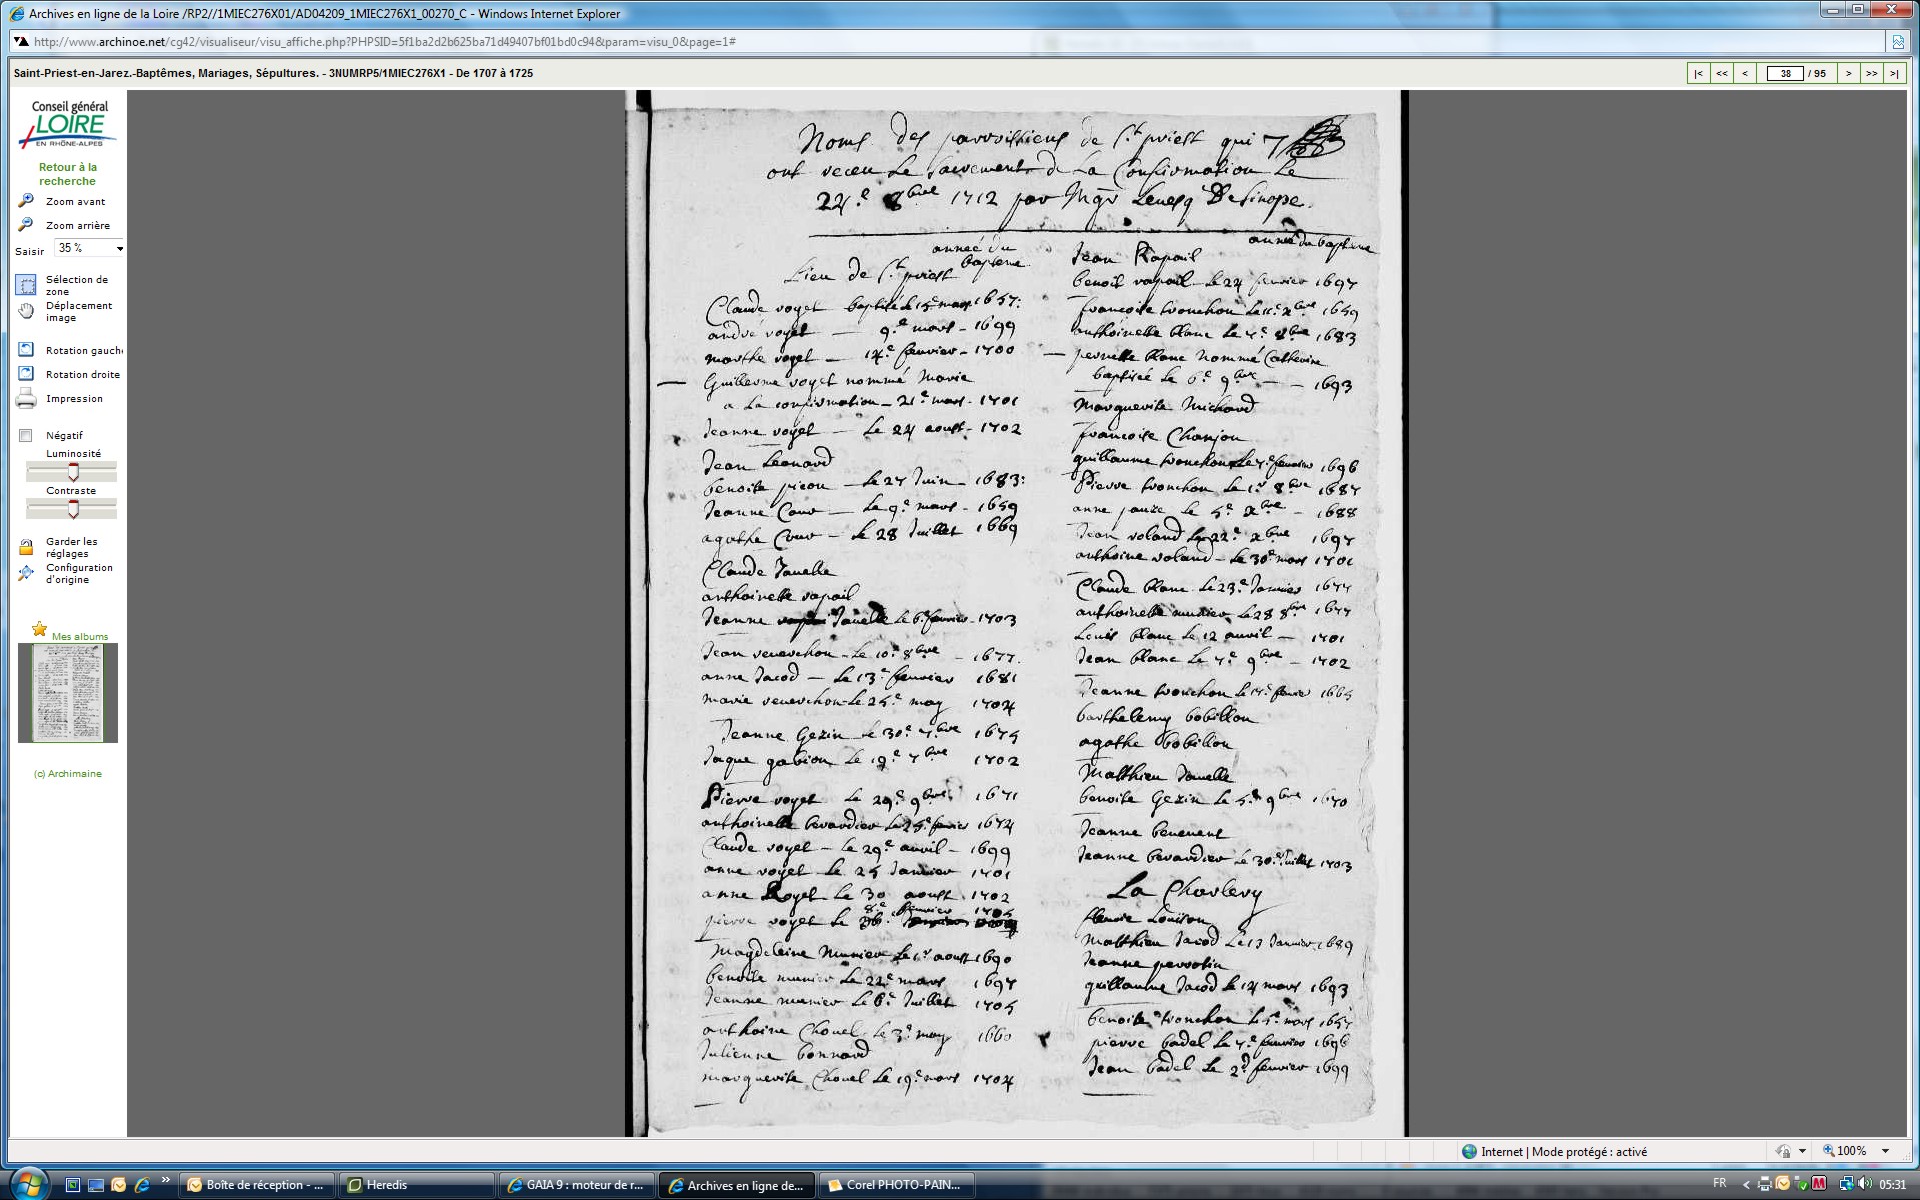 Archives en ligne de la Loire /RP2//1MIEC276X01/AD04209_1MIEC276X1_00270_C - Windows Internet Explorer
http://www.archinoe.net/cg42/visualiseur/visu_affiche.php?PHPSID=5f1ba2d2b625ba71d49407bf01bd0c94&param=visu_0&page=1#
Saint-Priest-en-Jarez.-Baptêmes, Mariages, Sépultures. - 3NUMRP5/1MIEC276X1 - De 1707 à 1725
|< << < 38 / 95 > >> >|
Conseil général
LOIRE
EN RHÔNE-ALPES
Retour à la
recherche
Zoom avant
Zoom arrière
Saisir 35 %
Sélection de
zone
Déplacement
image
Rotation gauch
Rotation droite
Impression
Négatif
Luminosité
Contraste
Garder les
réglages
Configuration
d'origine
Mes albums
(c) Archimaine
Noms des parroissiens de St priest qui
ont receu le sacrement de La Confirmation Le
24e 8bre 1712 par Mgr Leuesq De Sinope.
année du
bapteme
Lieu de St priest
Claude voyet baptisé le 15e mars 1657:
andré voyet — 9e mars - 1699
marthe voyet — 14e feurier - 1700
Guillerme voyet nommé Marie
a La confirmation - 21e mars - 1701
Jeanne voyet — Le 24 aoust - 1702
Jean Leonard
benoite picon — Le 27 Juin - 1683:
Jeanne Cour — Le 9e mars - 1659
agathe Cour — Le 28 Juillet 1669
Claude Jauelle
anthoinette rapail
Jeanne Jauelle Le 6e feurier - 1703
Jean reuerchon - Le 10e 8bre - 1677.
anne Jacod — Le 13e feurier 1681
marie reuerchon - Le 25e may 1704
Jeanne Gerin Le 30e 7bre 1675
Jaque gabion Le 19e 7bre 1702
Pierre voyet Le 29e 9bre 1671
anthoinette berardier Le 25e feurier 1674
Claude voyet - Le 29e auril - 1699
anne voyet Le 25 Januier 1701
anne Royet Le 30 aoust 1702
pierre voyet Le 8e feurier 1705
Magdeleine Munier Le 1er aoust 1690
benoite munier Le 22e mars 1697
Jeanne munier Le 6e Juillet 1705
anthoine Chouel Le 3e may 1660
Julienne bonnard
marguerite Chouel Le 19e mars 1704
année du bapteme
Jean Rapail
benoit rapail Le 24 feurier 1697
francoise tronchon Le 11e xbre 1659
anthoinette blanc Le 7e 8bre 1683
— pernette blanc nommé Catherine
baptisée Le 6e 9bre — 1693
Marguerite Michard
francoise Chanjou
guillaume tronchon Le 7e feurier 1696
Pierre tronchon Le 1er 8bre 1687
anne jauze Le 5e xbre - 1688
Jean roland Le 22e xbre 1697
anthoine roland - Le 30e mars 1701
Claude blanc Le 23e Januier 1677
anthoinette munier Le 28 8bre 1677
Louis blanc Le 12 auril — 1701
Jean blanc Le 7e 9bre - 1702
Jeanne tronchon Le feurier 1665
barthelemy bobillon
agathe bobillon
Matthieu Jauelle
benoite Gerin Le 5e 9bre 1670
Jeanne beneuent
Jeanne berardier Le 30e Juillet 1703
La Charlery
fleurie Louison
Matthieu Jacod Le 13 Januier 1689
Jeanne perrotin
guillaume Jacod Le 14 mars 1693
benoite tronchon Le 5e mars 1657
pierre badel Le 7e feurier 1696
Jean badel Le 2d feurier 1699
Internet | Mode protégé : activé 100%
Boîte de réception - ... Heredis GAIA 9 : moteur de r... Archives en ligne de... Corel PHOTO-PAIN... FR 05:31